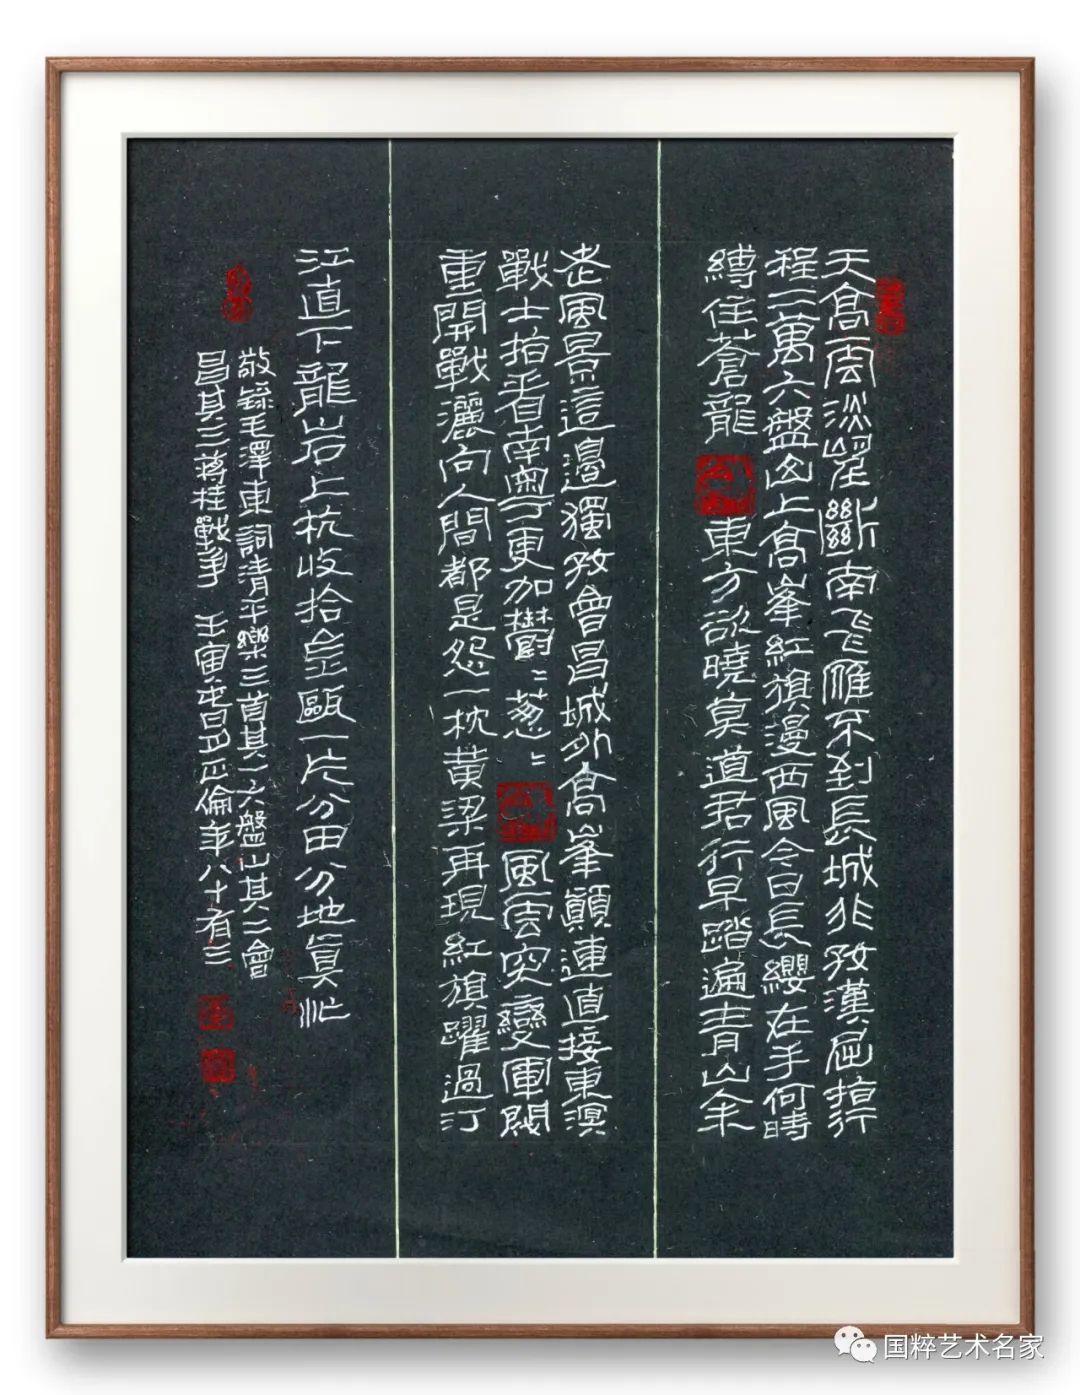 天高雲淡望斷南飞雁不到長城非好漢屈指行
程二萬六盤山上高峯紅旗漫西風今日長纓在手何時
縛住蒼龍 東方欲曉莫道君行早踏遍青山人未
老風景這邊獨好會昌城外高峯顛連直接東溟
戰士指看南粵更加鬱〻葱〻 風雲突變軍閥
重開戰灑向人間都是怨一枕黄粱再現紅旗躍過汀
江直下龍岩上杭收拾金甌一片分田分地真忙
敬録毛澤東詞清平樂三首其一六盤山其二會
昌其三蒋桂戰争 壬寅 倫年八十有三
国粹艺术名家